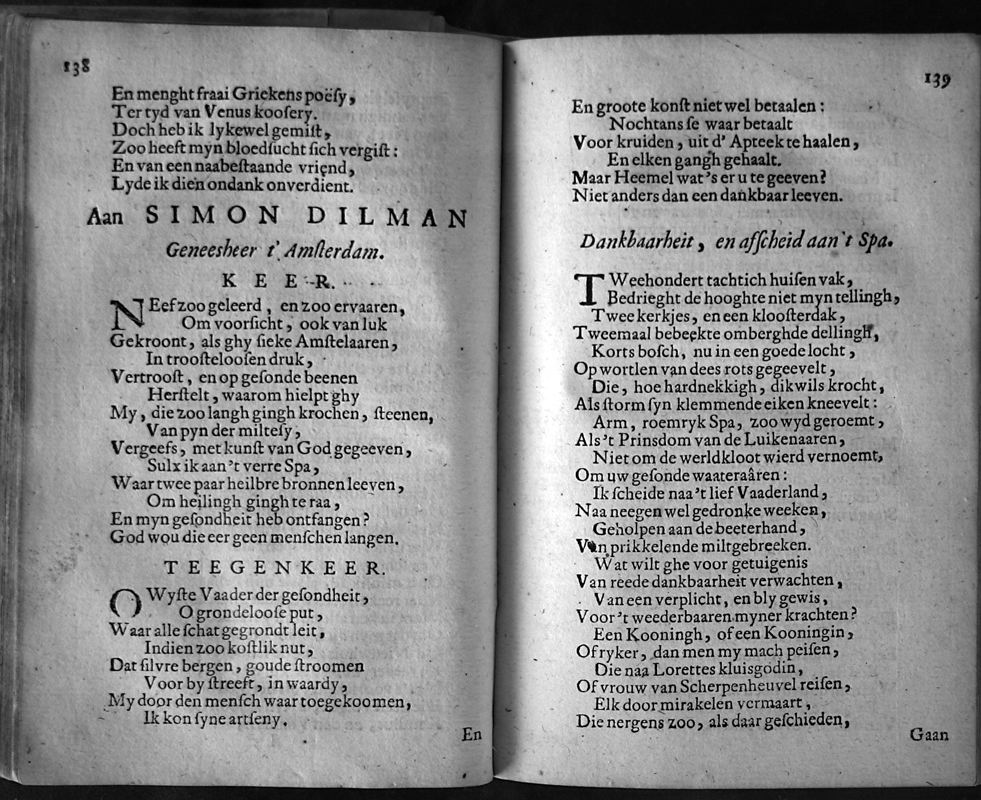 138
En menght fraai Grickens poësy,
Ter tyd van Venus koosery.
Doch heb ik lykewel gemiſt,
Zoo heeft myn bloedſucht ſich vergiſt:
En van een naabeſtaande vriend,
Lyde ik dien ondank onverdient.
Aan SIMON DILMAN
Geneesheer t' Amſterdam.
KEER.
NEef zoo geleerd, en zoo ervaaren,
Om voorſicht, ook van luk
Gekroont, als ghy ſieke Amſtelaaren,
In trooſteloosen druk,
Vertrooſt, en op geſonde beenen
Herſtelt, waarom hielpt ghy
My, die zoo langh gingh krochen, ſteenen,
Van pyn der milteſy,
Vergeefs, met kunſt van God gegeeven,
Sulx ik aan't verre Spa,
Waar twee paar heilbre bronnen leeven,
Om heilingh gingh te raa,
En myn geſondheit heb ontfangen?
God wou die eer geen menſchen langen.
TEEGENKEER.
O Wyſte Vaader der geſondheit,
O grondelooſe put,
Waar alle ſchat gegrondt leit,
Indien zoo koſtlik nut,
Dat ſilvre bergen, goude ſtroomen
Voor by ſtreeft, in waardy,
My door den menſch waar toegekoomen,
Ik kon ſyne artſeny.
En
139
En groote konſt niet wel betaalen:
Nochtans ſe waar betaalt
Voor kruiden, uit d' Apteek te haalen,
En elken gangh gehaalt.
Maar Heemel wat's er u te geeven?
Niet anders dan een dankbaar leeven.
Dankbaarheit, en afſcheid aan't Spa.
TWeehondert tachtich huiſen vak,
Bedrieght de hooghte niet myn tellingh,
Twee kerkjes, en een klooſterdak,
Tweemaal bebeekte omberghde dellingh,
Korts boſch, nu in een goede locht,
Op wortlen van dees rots gegeevelt,
Die, hoe hardnekkigh, dikwils krocht,
Als ſtorm ſyn klemmende eiken kneevelt:
Arm, roemryk Spa, zoo wyd geroemt,
Als't Prinsdom van de Luikenaaren,
Niet om de werldkloot wierd vernoemt,
Om uw geſonde waateraâren:
Ik ſcheide naa't lief Vaaderland,
Naa neegen wel gedronke weeken,
Geholpen aan de beeterhand,
Van prikkelende miltgebreeken.
Wat wilt ghe voor getuigenis
Van reede dankbaarheit verwachten,
Van een verplicht, en bly gewis,
Voor't weederbaaren myner krachten?
Een Kooningh, of een Kooningin,
Of ryker, dan men my mach peiſen,
Die naa Lorettes kluisgodin,
Of vrouw van Scherpenheuvel reiſen,
Elk door mirakelen vermaart,
Die nergens zoo, als daar geſchieden,
Gaan